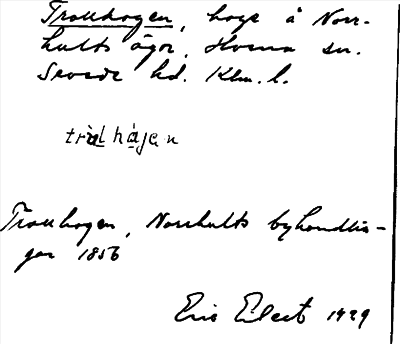 Trollhagen, hage å Norr-
hults ägor, Hvena sn.
Sevede hd. Klm. l.
tròlhá̱jen
Trollhagen, Norrhults byhandlin-
gar 1856
Eric Elect 1929